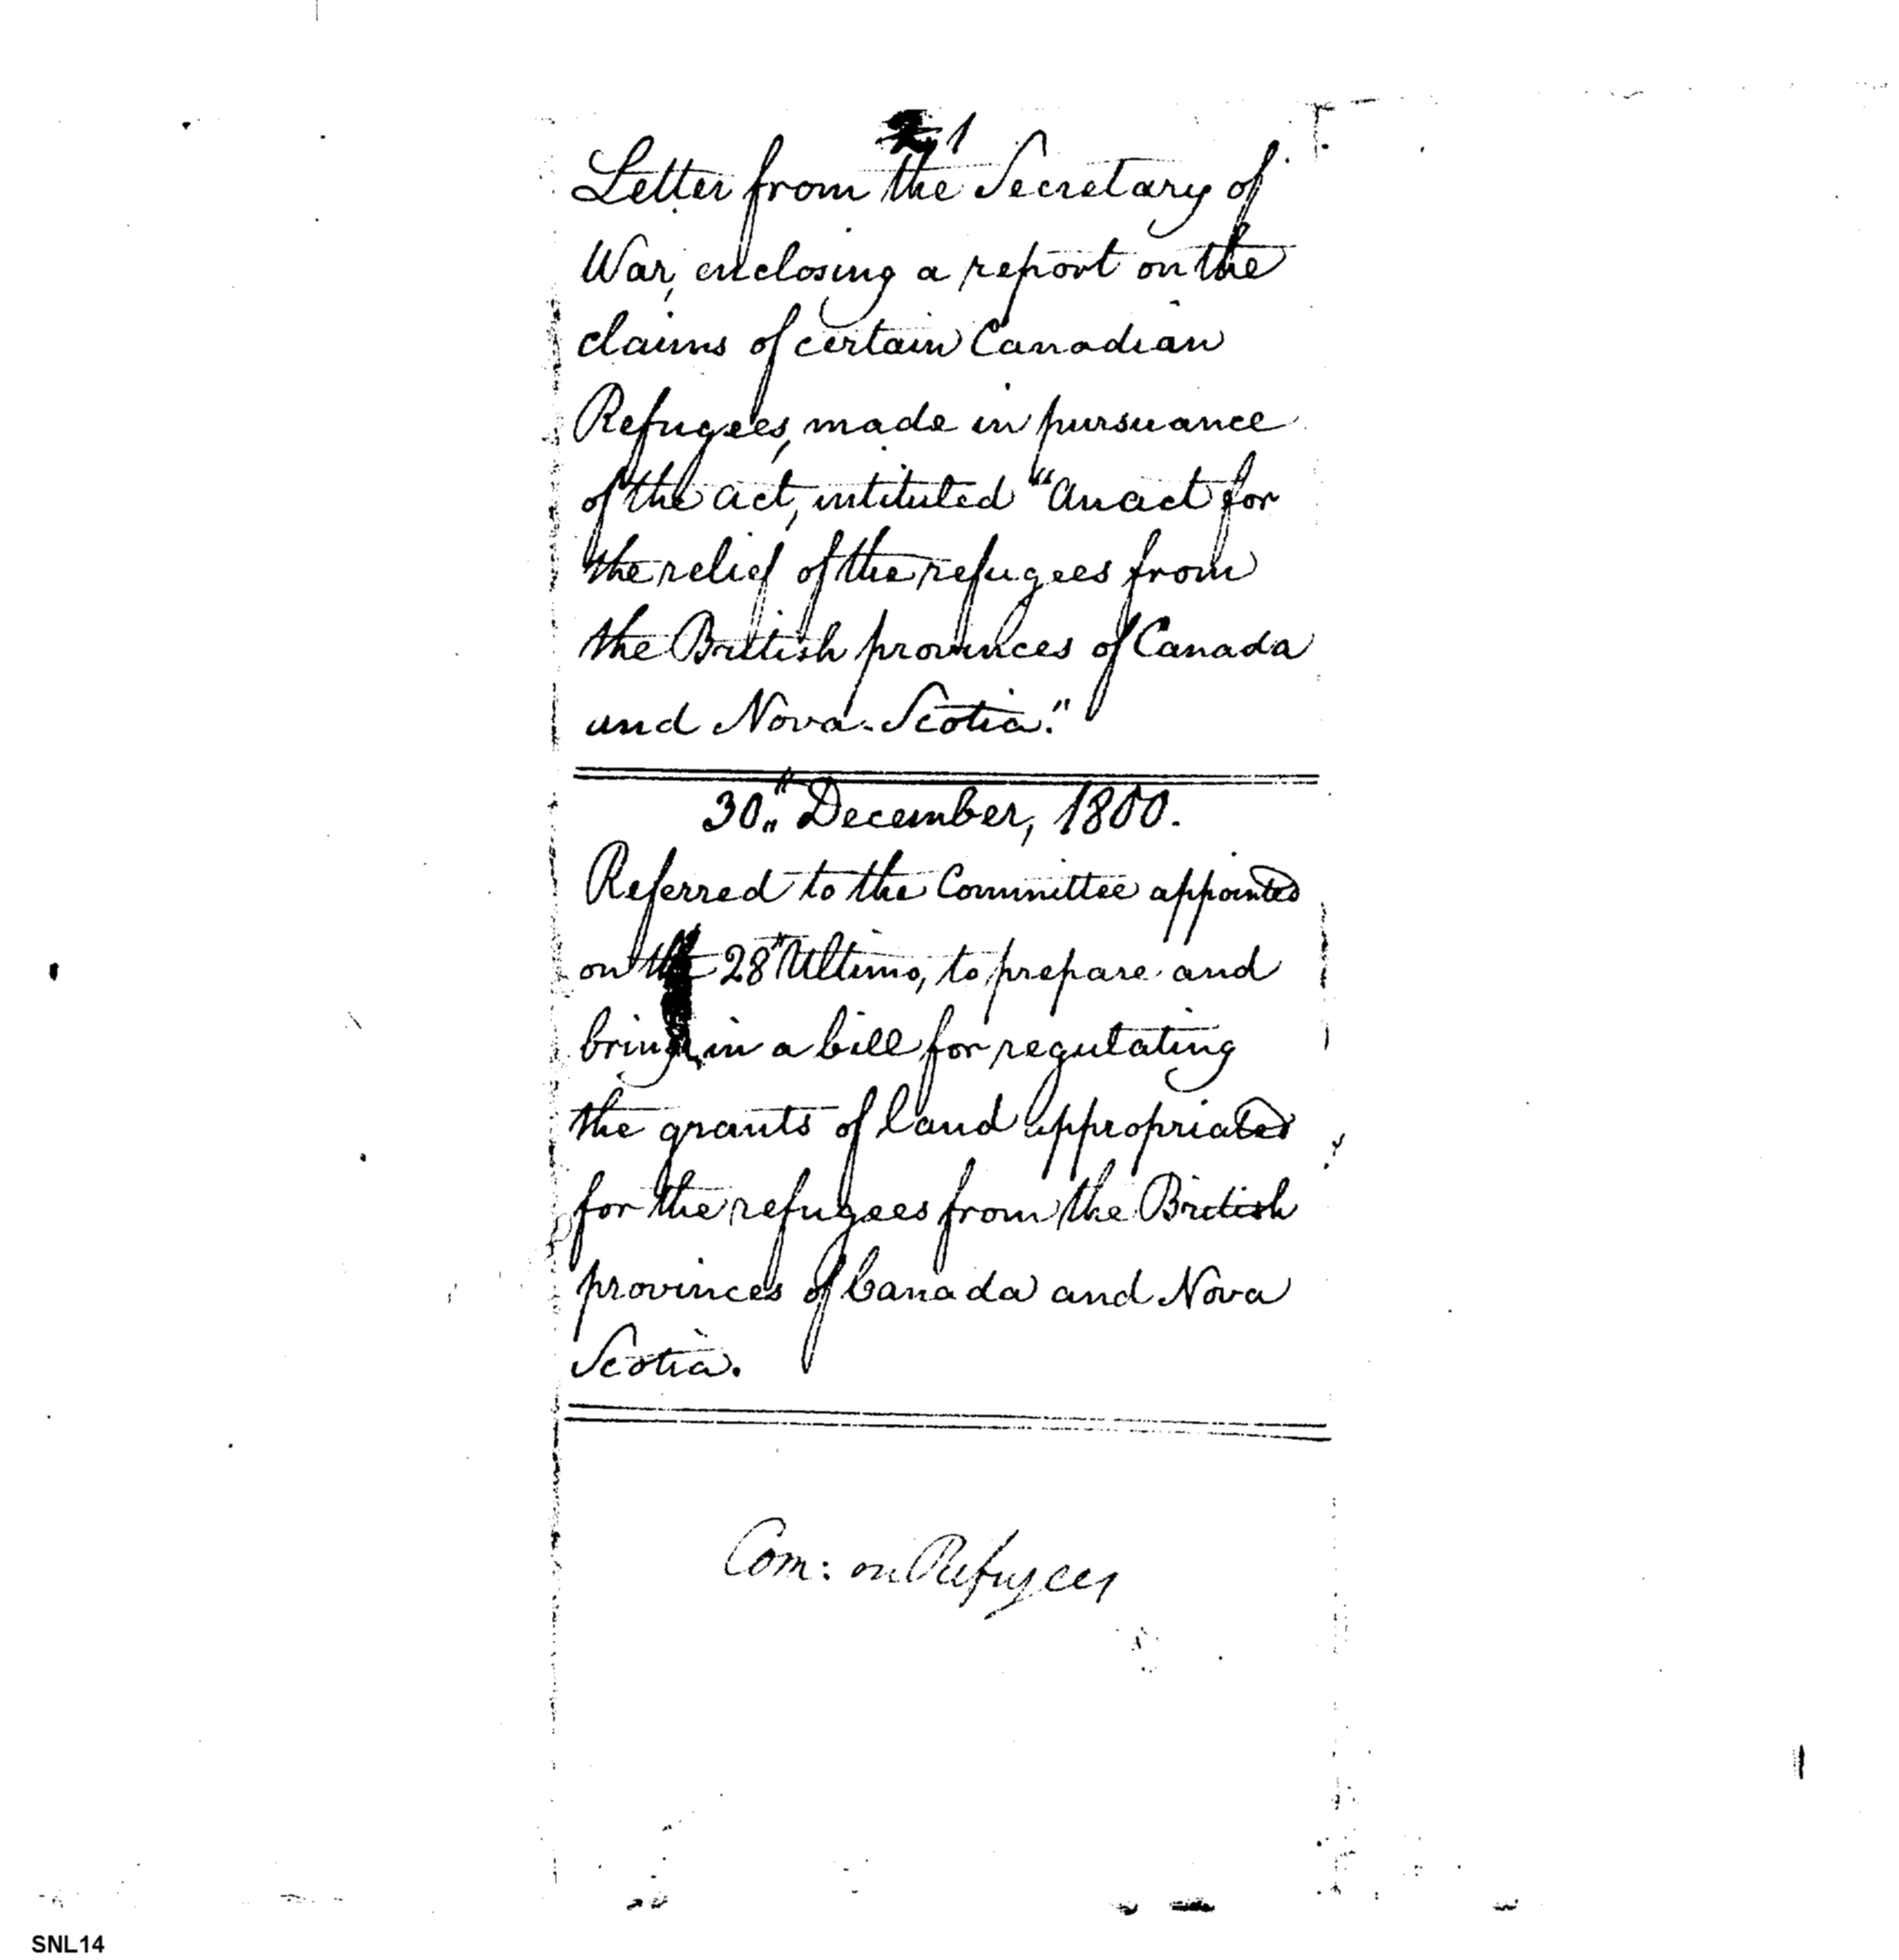 1
Letter from the Secretary of
War, enclosing a report on the
claims of certain Canadian
Refugees, made in pursuance
of the act, intituled "An act for
the relief of the refugees from
the British provinces of Canada
and Nova-Scotia."
30th December, 1800.
Referred to the Committee appointed
on the 28th Ultimo, to prepare and
bring in a bill for regulating
the grants of land appropriated
for the refugees from the British
provinces of Canada and Nova
Scotia.
Com: on Refugees
SNL14